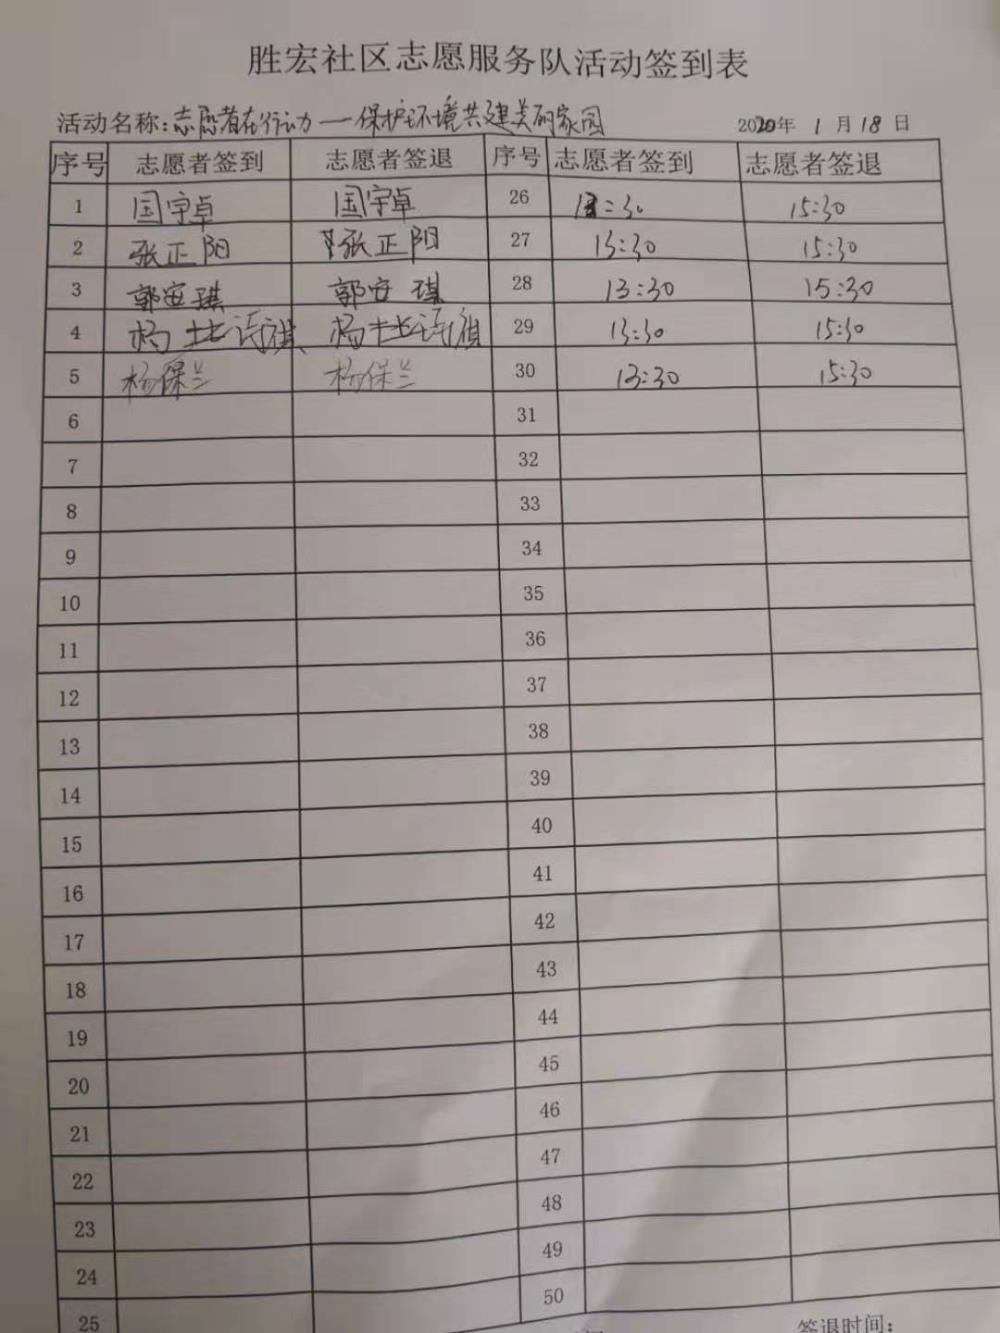 胜宏社区志愿服务队活动签到表
活动名称:志愿者在行动——保护环境共建美丽家园 2020年 1 月 18 日
序号 志愿者签到 志愿者签退 序号 志愿者签到 志愿者签退
1 国宇卓 国宇卓 26 13:30 15:30
2 张正阳 张正阳 27 13:30 15:30
3 郭安琪 郭安琪 28 13:30 15:30
4 杨 诗祺 杨 诗祺 29 13:30 15:30
5 杨保兰 杨保兰 30 13:30 15:30
6 31
7 32
8 33
9 34
10 35
11 36
12 37
13 38
14 39
15 40
16 41
17 42
18 43
19 44
20 45
21 46
22 47
23 48
24 49
25 50
签退时间: